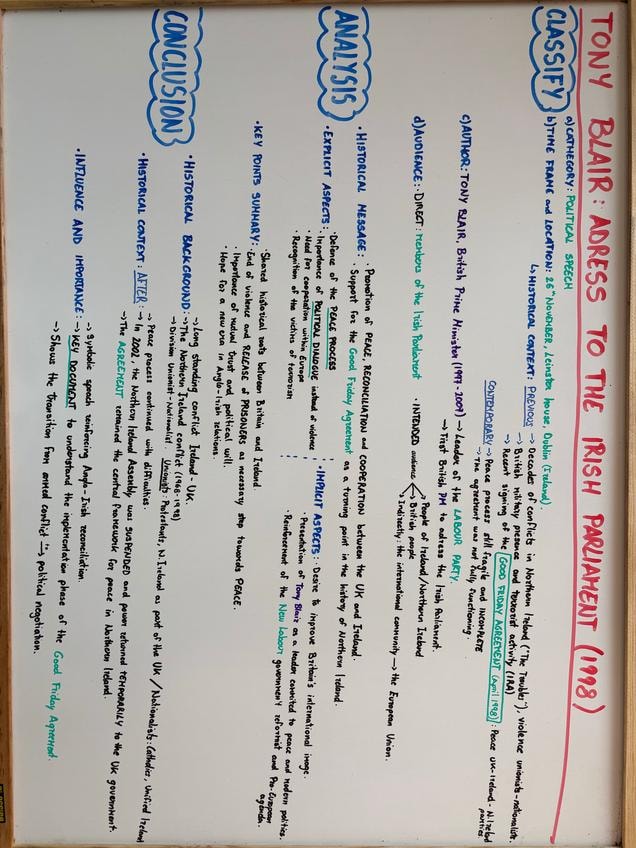 TONY BLAIR: ADRESS TO THE IRISH PARLIAMENT (1998)
CLASSIFY
a) CATHEGORY: POLITICAL SPEECH
b) TIME FRAME and LOCATION: 26th NOVEMBER, Leinster House, Dublin (Ireland).
↳ HISTORICAL CONTEXT: PREVIOUS → Decades of conflicts in Northern Ireland ("The Troubles"), violence unionists-nationalists.
→ British military presence and terrorist activity (IRA)
→ Recent signing of the GOOD FRIDAY AGREEMENT (April 1998): Peace UK-Ireland, N.Ireland parties
CONTEMPORARY → Peace process still fragile and INCOMPLETE
→ The agreement was not fully functioning.
c) AUTHOR: TONY BLAIR, British Prime Minister (1997-2007) → Leader of the LABOUR PARTY.
→ First British PM to adress the Irish Parliament.
d) AUDIENCE: · DIRECT: members of the Irish Parliament · INTENDED audience → People of Ireland/Northern Ireland
→ British people
→ Indirectly: the international community → the European Union.
ANALYSIS
· HISTORICAL MESSAGE: · Promotion of PEACE, RECONCILIATION and COOPERATION between the UK and Ireland.
· Support for the Good Friday Agreement as a turning point in the history of Northern Ireland.
· EXPLICIT ASPECTS: · Defence of the PEACE PROCESS
· Importance of POLITICAL DIALOGUE instead of violence
· Need for cooperation within Europe
· Recognition of the victims of terrorism
· IMPLICIT ASPECTS: · Desire to improve Britain's international image.
· Presentation of Tony Blair as a leader commited to peace and modern politics.
· Reinforcement of the New Labour government reformist and Pro-European agenda.
· KEY POINTS SUMMARY: · Shared historical roots between Britain and Ireland.
· End of violence and RELEASE of PRISONERS as necessary step towards PEACE.
· Importance of mutual trust and political will.
· Hope for a new era in Anglo-Irish relations.
CONCLUSION
· HISTORICAL BACKGROUND: → Long standing conflict Ireland - UK.
→ The Northern Ireland conflict (1968-1998)
→ Division Unionist-Nationalist. Unionists: Protestants, N.Ireland as part of the UK / Nationalists: Catholics, Unified Ireland
· HISTORICAL CONTEXT: AFTER: → Peace process continued with difficulties.
→ In 2002, the Northern Ireland Assembly was SUSPENDED and power returned TEMPORARILY to the UK government.
→ The AGREEMENT remained the central framework for peace in Northern Ireland.
· INFLUENCE AND IMPORTANCE: → Symbolic speech reinforcing Anglo-Irish reconciliation.
→ KEY DOCUMENT to understand the implementation phase of the Good Friday Agreement.
→ Shows the transition from armed conflict → political negotiation.